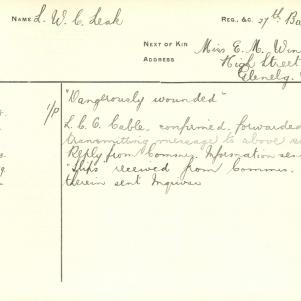 NAME L. W. C. Leak REG., &C. 27th Ba
NEXT OF KIN Miss E. M. Win
ADDRESS High Street
Glenelg.
"Dangerously wounded"
1/P L. C. O. Cable. confirmed. forwarded
transmitting message to above
Reply from Commsy. Information sen
slips received from Commns.
therein sent Inquirer